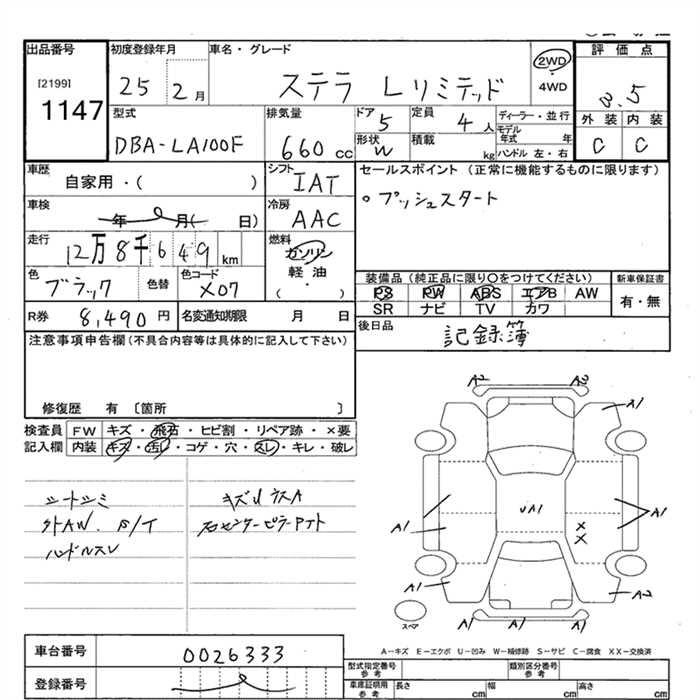 出品番号 初度登録年月 車名・グレード 2WD 評価点
[2199] 25 2月 ステラ Lリミテッド 4WD 3.5
1147 外装 内装
型式 排気量 ドア 5 定員 4人 ディーラー・並行 C C
DBA-LA100F 660cc 形状 W 積載 kg モデル年式 年
ハンドル 左・右
車歴 シフト セールスポイント (正常に機能するものに限ります)
自家用・( ) IAT ○プッシュスタート
車検 冷房
年 月( 日) AAC
走行 燃料
12万8千649km ガソリン
軽油
( ・ )
色 色替 色コード 装備品(純正品に限り○をつけてください) 新車保証書
ブラック X07 PS PW ABS エアB AW 有・無
SR ナビ TV カワ
R券 8,490円 名変通知期限 月 日 後日品 記録簿
注意事項申告欄(不具合内容等は具体的に記入して下さい)
修復歴 有 〔箇所 〕
検査員 FW キズ・飛石・ヒビ割・リペア跡・×要
記入欄 内装 キズ・汚レ・コゲ・穴・スレ・キレ・破レ
シートシミ キズU大A
外AW. B/T 右センターピラーアト
ハンドルスレ
A2 A2
A1
UA1
A1 A1
X
X
A1 A2
スペア A1 A1
A-キズ E-エクボ U-凹み W-補修跡 S-サビ C-腐食 XX-交換済
車台番号 0026333
登録番号
型式指定番号 参考 類別区分番号 参考
車庫証明用 参考 長さ cm 幅 cm 高さ cm